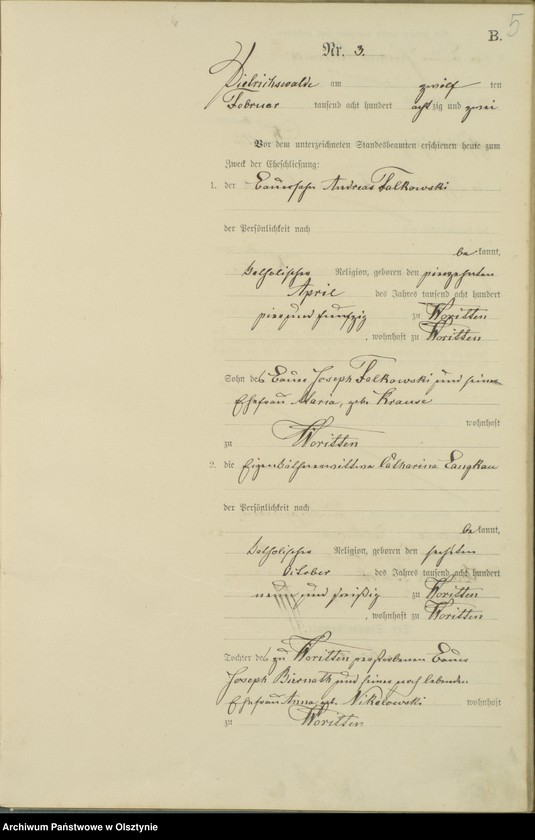 B. 5
Nr. 3.
Dietrichswalde am zwölf ten
Februar tausend acht hundert achtzig und zwei
Vor dem unterzeichneten Standesbeamten erschienen heute zum
Zweck der Eheschließung:
1. der Bauersohn Andreas Falkowski
der Persönlichkeit nach
bekannt,
katholischer Religion, geboren den vierzehnten
April des Jahres tausend acht hundert
vierundfunfzig zu Woritten
, wohnhaft zu Woritten
Sohn des Bauer Joseph Falkowski und seiner
Ehefrau Maria, geb. Krause
wohnhaft
zu Woritten
2. die Eigenkäthnerwittwe Catharina Langkau
der Persönlichkeit nach
bekannt,
katholischer Religion, geboren den sechsten
October des Jahres tausend acht hundert
neun und dreißig zu Woritten
, wohnhaft zu Woritten
Tochter des zu Woritten verstorbenen Bauer
Joseph Biernath und seiner noch lebenden
Ehefrau Anna, geb. Nikolowski wohnhaft
zu Woritten
Archiwum Państwowe w Olsztynie